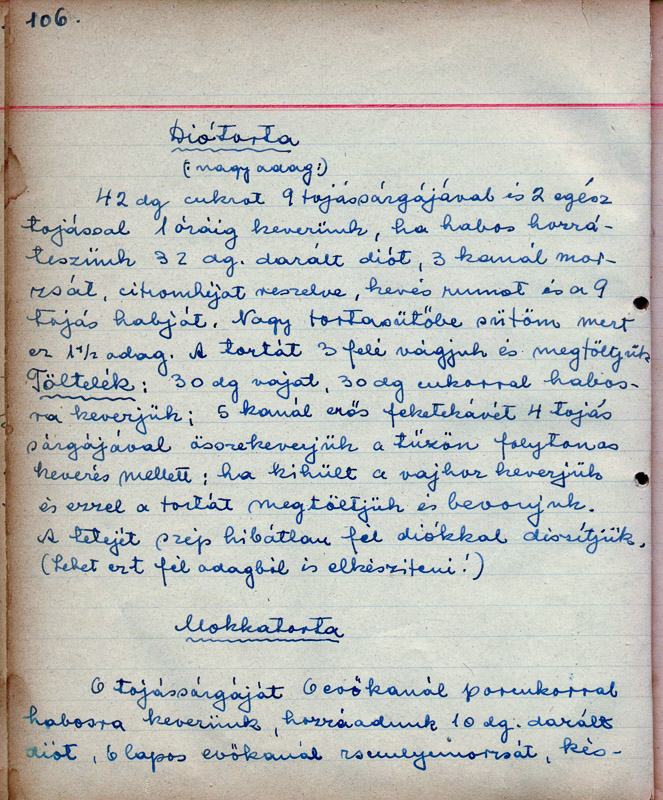 106.
Diótorta
(: nagy adag :)
42 dg cukrot 9 tojássárgájával és 2 egész
tojással 1 óráig keverünk, ha habos hozzá-
teszünk 32 dg. darált diót, 3 kanál mor-
zsát, citromhéjat reszelve, kevés rumot és a 9
tojás habját. Nagy tortasütőbe sütöm mert
ez 1 1/2 adag. A tortát 3 felé vágjuk és megtöltjük
Töltelék: 30 dg vajat, 30 dg cukorral habos-
ra keverjük; 5 kanál erős feketekávét 4 tojás
sárgájával összekeverjük a tűzön folytonos
keverés mellett; ha kihült a vajhoz keverjük
és ezzel a tortát megtöltjük és bevonjuk.
A tetejét szép hibátlan fél diókkal díszítjük.
(Lehet ezt fél adagból is elkészíteni!)
Mokkatorta
6 tojássárgáját 6 evőkanál porcukorral
habosra keverünk, hozzáadunk 10 dg. darált
diót, 6 lapos evőkanál zsemlyemorzsát, kés-